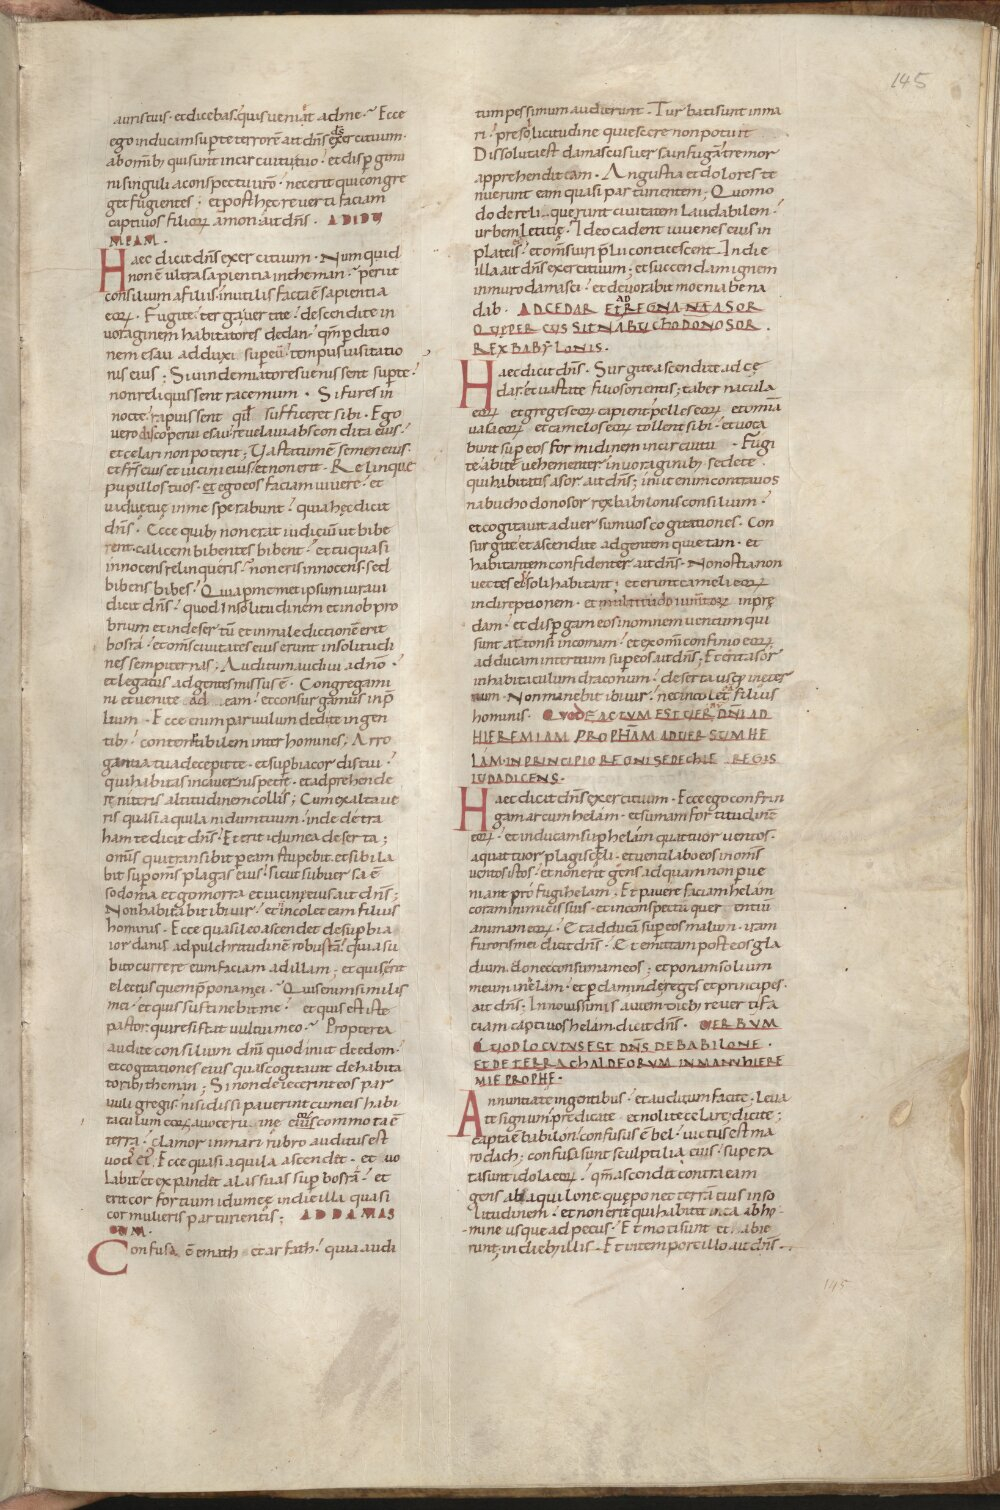 145
auris tuis · et dicebas · quis veniat ad me · Ecce
ego inducam sup te terrorē ait dn̄s ds̄ exercituum ·
ab omib; qui sunt in circuitu tuo · et dispgemi
ni singuli a conspectu urō · nec erit qui congre
get fugientes ; et post hęc reverti faciam
captivos filioꝝ amon ait dn̄s . AD IDU
MEAM .
Haec dicit dn̄s exercituum · Numquid
non ē ultra sapientia in theman · periit
consilium a filiis · inutilis facta ē sapientia
eoꝝ · Fugite · terga vertite · descendite in
voraginem habitatores dedan · qm̄ pditio
nem esau adduxi sup eū · tempus visitatio
nis eius ; Si vindemiatores venissent sup te ·
non reliquissent racemum · Si fures in
nocte · rapuissent qd̄ sufficeret sibi · Ego
vero discoperui esau · revelavi abscondita eius ·
et celari non poterit ; Vastatum ē semen eius ·
et frs̄ eius et vicini eius · et non erit · Relinque
pupillos tuos · et ego eos faciam vivere · et
viduę tuę in me sperabunt · quia hęc dicit
dn̄s · Ecce quib; non erat iudiciū ut bibe
rent calicem bibentes bibent · et tu quasi
innocens relinqueris · non eris innocens · sed
bibens bibes · Quia p memet ipsum iuravi
dicit dn̄s · quod in solitudinem et in obpro
brium et in desertū et in maledictionē erit
bosra · et om̄s civitates eius erunt in solitudi
nes sempiternas ; Auditum audivi a dn̄o ·
et legatus ad gentes missus ē · Congregami
ni et venite ad eam · et consurgamus in p̄
lium · Ecce enim parvulum dedi te in gen
tib; · contemtibilem inter homines ; Arro
gantia tua decepit te · et supbia cordis tui ·
qui habitas in cavernis petrę · et adprehende
re niteris altitudinem collis ; Cum exaltave
ris quasi aquila nidum tuum · inde detra
ham te dicit dn̄s · Et erit idumea deserta ;
omis qui transibit p eam stupebit · et sibila
bit sup om̄s plagas eius · sicut subversa ē
sodoma et gomorra et vicinę eius ait dn̄s ;
Non habitabit ibi vir · et n̄ incolet eam filius
hominis · Ecce quasi leo ascendet de supbia
iordanis ad pulchritudinē robustā · quia su
bito currere eum faciam ad illam ; et quis erit
electus quem pponam ei · Quis enim similis
mei · et quis sustinebit me · et quis est iste
pastor qui resistat vultui meo · Propterea
audite consilium dn̄i quod iniit de edom ·
et cogitationes eius quas cogitavit de habita
torib; theman ; Si non deiecerint eos par
vuli gregis · nisi dissipaverint cum eis habi
taculum eoꝝ a voce ruinę eius commota ē
terra · clamor in mari rubro auditus est
voci ei; · Ecce quasi aquila ascendet · et vo
labit · et expandet alas suas sup bosrā · et
erit cor fortium idumeę in die illa quasi
cor mulieris parturientis ; AD DAMAS
CUM .
Confusa ē emath et arfath · quia audi
tum pessimum audierunt · Turbati sunt in ma
ri · pre solicitudine quiescere non potuit
Dissoluta est damascus versa in fugā · tremor
apprehendit eam · Angustia et dolores te
nuerunt eam quasi parturientem ; Quomo
do dereliquerunt civitatem laudabilem ·
urbem letitię · Ideo cadent iuvenes eius in
plateis · et om̄s viri p̄lii conticescent · In die
illa ait dn̄s exercituum ; et succendam ignem
in muro damasci · et devorabit moenia bena
dib . AD CEDAR ET AD REGNA NASOR
QU PERCUSSIT NABUCHODONOSOR .
REX BABYLONIS .
Haec dicit dn̄s · Surgite ascendite ad cę
dar · et vastate filios orientis ; tabernacula
eoꝝ et greges eoꝝ capient · pelles eoꝝ et omā
vasa eoꝝ et camelos eoꝝ tollent sibi · et voca
bunt sup eos formidinem in circuitu · Fugi
te abite vehementer · in voraginib; sedete ·
qui habitatis asor · ait dn̄s ; iniit enim contra vos
nabuchodonosor rex babilonis consilium ·
et cogitavit adversum vos cogitationes · Con
surgite et ascendite ad gentem quietam · et
habitantem confidenter · ait dn̄s · Non ostia non
vectes eis soli habitant ; et erunt cameli eoꝝ
in direptionem · et multitudo iumentoꝝ in prę
dam · et dispgam eos in omnem ventum qui
sunt attonsi in comam · et ex omi confinio eoꝝ
adducam interitum sup eos ait dn̄s ; Et erit asor
in habitaculum draconum · deserta usq; in eter
num · Non manebit ibi vir · nec incolet ea filius
hominis · QUOD FACTUM EST VERBŪ DN̄I AD
HIEREMIAM PROPHAM ADVERSUM HE
LAM · IN PRINCIPIO REGNI SEDECHIE REGIS
IUDA DICENS .
Haec dicit dn̄s exercituum · Ecce ego confrin
gam arcum helam · et sumam fortitudinē
eoꝝ · et inducam sup helam quattuor ventos ·
a quattuor plagis cęli · et ventilabo eos in om̄s
ventos istos · et non erit gens ad quam non pve
niant pfugi helam · Et pavere faciam helam
coram inimicis suis · et in conspectu querentiū
animam eoꝝ · Et adducā sup eos malum · iram
furoris mei dicit dn̄s · Et emittam post eos gla
dium donec consumam eos ; et ponam solium
meum in helam · et pdam inde reges et principes ·
ait dn̄s ; In novissimis autem dieb; reverti fa
ciam captivos helam dicit dn̄s · VERBUM
QUOD LOCUTUS EST DN̄S DE BABILONE .
ET DE TERRA CHALDEORUM IN MANU HIERE
MIE PROPHE .
Annuntiate in gentibus · et auditum facite · Leva
te signum · predicate et nolite celare ; dicite ;
capta ē babilon · confusus ē bel · victus est ma
rodach ; confusa sunt sculptilia eius · supera
ta sunt idola eoꝝ · qm̄ ascendit contra eam
gens ab aquilone · quę ponet terrā eius in so
litudinem · et non erit qui habitet in ea ab ho
mine usque ad pecus · Et moti sunt et abie
runt ; in dieb; illis · Et in tempore illo ait dn̄s ·
145